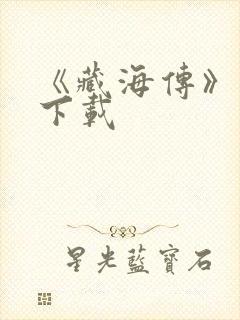 《藏海傳》
下載
星光藍寶石